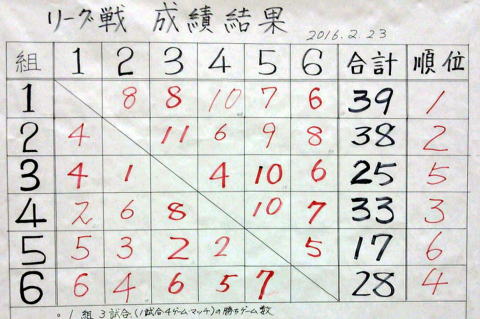 リーグ戦 成績結果
2016.2.23
組 1 2 3 4 5 6 合計 順位
1 8 8 10 7 6 39 1
2 4 11 6 9 8 38 2
3 4 1 4 10 6 25 5
4 2 6 8 10 7 33 3
5 5 3 2 2 5 17 6
6 6 4 6 5 7 28 4
。1組 3試合、(1試合4ゲームマッチ)の勝ちゲーム数